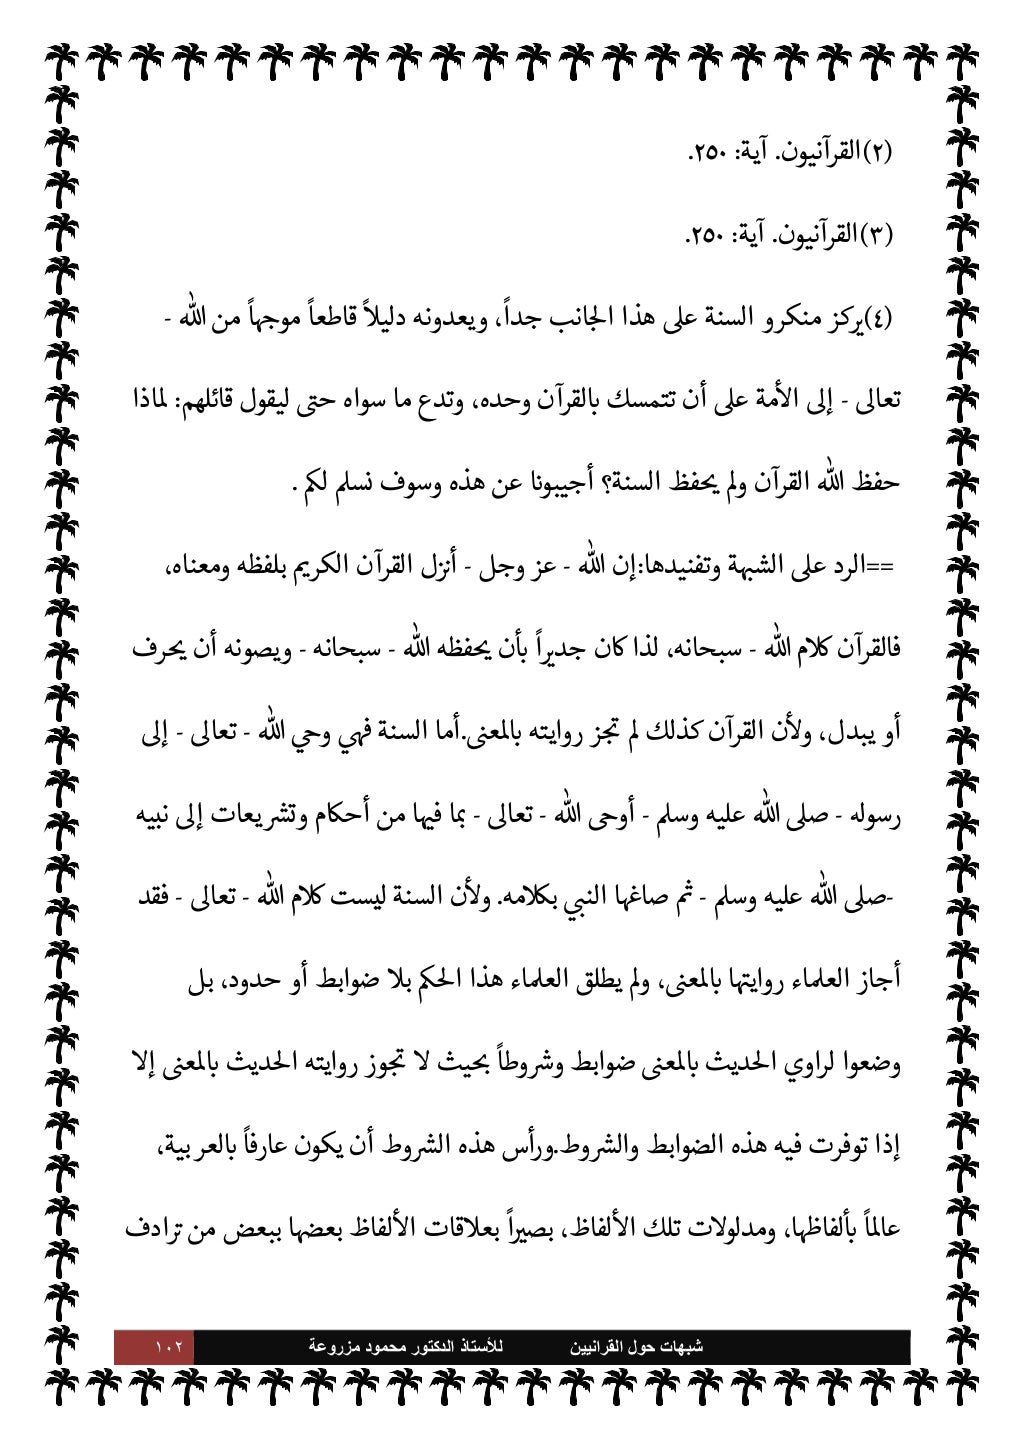 (٢)القرآنيون. آية: ٢٥٠.
(٣)القرآنيون. آية: ٢٥٠.
(٤)يركز منكرو السنة على هذا الجانب جداً، ويعدونه دليلاً قاطعاً موجهاً من الله -
تعالى - إلى الأمة على أن تتمسك بالقرآن وحده، وتدع ما سواه حتى ليقول قائلهم: لماذا
حفظ الله القرآن ولم يحفظ السنة؟ أجيبونا عن هذه وسوف نسلم لكم .
==الرد على الشبهة وتفنيدها:إن الله - عز وجل - أنزل القرآن الكريم بلفظه ومعناه،
فالقرآن كلام الله - سبحانه، لذا كان جديراً بأن يحفظه الله - سبحانه - ويصونه أن يحرف
أو يبدل، ولأن القرآن كذلك لم تجز روايته بالمعنى.أما السنة فهي وحي الله - تعالى - إلى
رسوله - صلى الله عليه وسلم - أوحى الله - تعالى - بما فيها من أحكام وتشريعات إلى نبيه
-صلى الله عليه وسلم - ثم صاغها النبي بكلامه. ولأن السنة ليست كلام الله - تعالى - فقد
أجاز العلماء روايتها بالمعنى، ولم يطلق العلماء هذا الحكم بلا ضوابط أو حدود، بل
وضعوا لراوي الحديث بالمعنى ضوابط وشروطاً بحيث لا تجوز روايته الحديث بالمعنى إلا
إذا توفرت فيه هذه الضوابط والشروط.ورأس هذه الشروط أن يكون عارفاً بالعربية،
عالماً بألفاظها، ومدلولات تلك الألفاظ، بصيراً بعلاقات الألفاظ بعضها ببعض من ترادف
شبهات حول القرانيين للأستاذ الدكتور محمود مزروعة ١٠٢